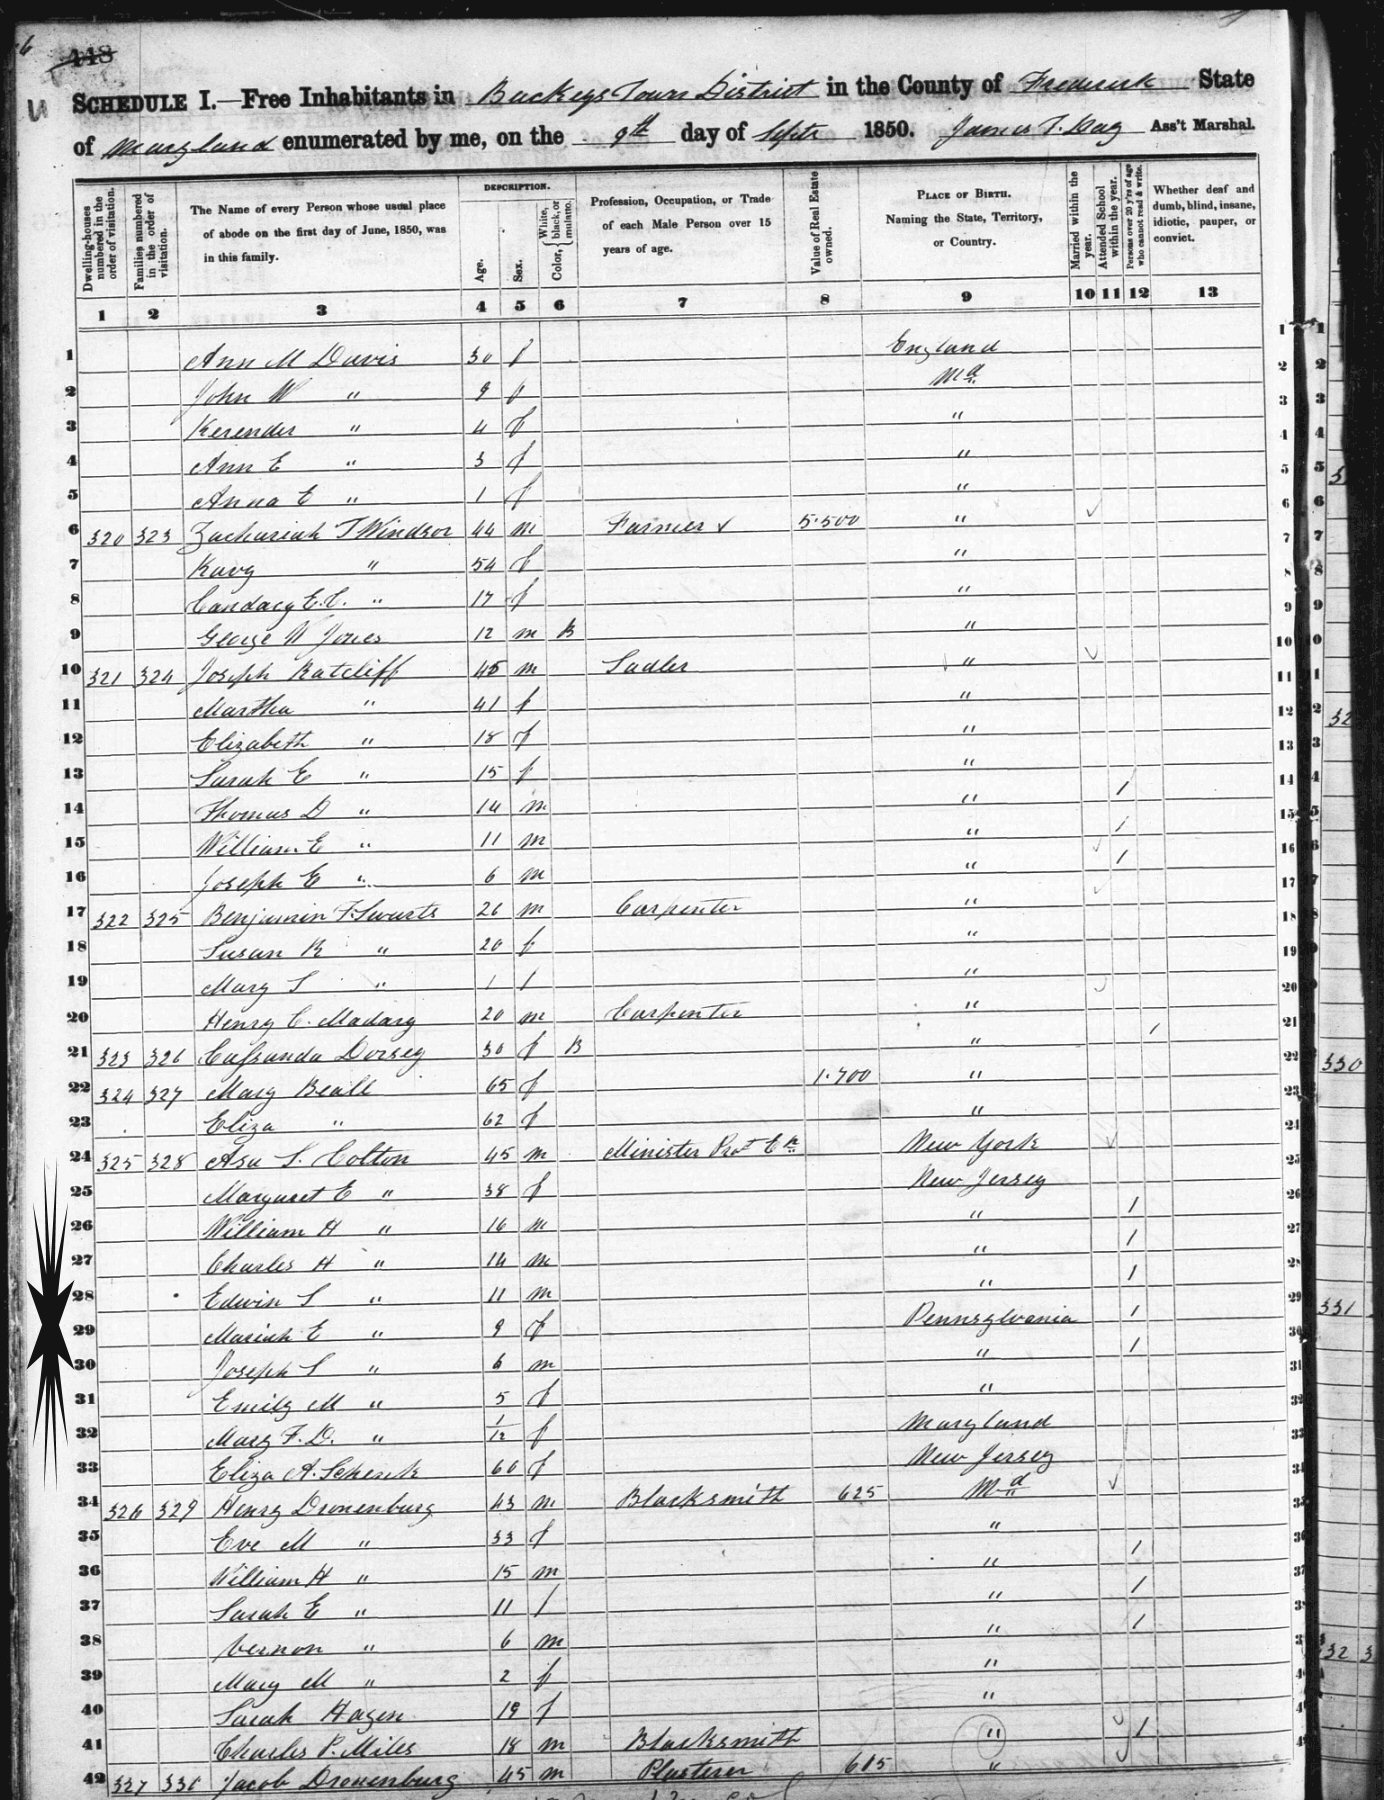 448
SCHEDULE I.—Free Inhabitants in Buckeys Town District in the County of Frederick State
of Maryland enumerated by me, on the 9th day of Sept 1850. James T. Day Ass't Marshal.
Dwelling-houses numbered in the order of visitation.
Families numbered in the order of visitation.
The Name of every Person whose usual place of abode on the first day of June, 1850, was in this family.
DESCRIPTION.
Age.
Sex.
Color, { White, black, or mulatto.
Profession, Occupation, or Trade of each Male Person over 15 years of age.
Value of Real Estate owned.
PLACE OF BIRTH. Naming the State, Territory, or Country.
Married within the year.
Attended School within the year.
Persons over 20 y'rs of age who cannot read & write.
Whether deaf and dumb, blind, insane, idiotic, pauper, or convict.
1 2 3 4 5 6 7 8 9 10 11 12 13
1 Ann M Davis 30 f England 1
2 John W " 9 Md 2
3 Kerender " 4 f " 3
4 Ann E " 3 f " 4
5 Anna E " 1 f " 5
6 320 323 Zachariah T Windsor 44 m Farmer 5.500 " 6
7 " 54 f " 7
8 Candacy E. C. " 17 f " 8
9 George W Jones 12 m B " 9
10 321 324 Joseph Ratcliff 45 m Sadler " 10
11 Martha " 41 f " 11
12 Elizabeth " 18 f " 12
13 Sarah E " 15 f " 13
14 Thomas D " 14 m " 1 14
15 William E " 11 m " 1 15
16 Joseph E " 6 m " 1 16
17 322 325 Benjamin F. Swarts 26 m Carpenter " 17
18 Susan R " 20 f " 18
19 Mary S " 1 f " 19
20 Henry C. Madary 20 m Carpenter " 20
21 323 326 Cassanda Dorsey 30 f B " 1 21
22 324 327 Mary Beall 65 f 1.700 " 22
23 Eliza " 62 f " 23
24 325 328 Asa S. Colton 45 m Minister Prot Ch New York 24
25 Margaret E " 38 f New Jersey 25
26 William H " 16 m " 1 26
27 Charles H " 14 m " 1 27
28 Edwin S " 11 m " 1 28
29 Mariah E " 9 f Pennsylvania 1 29
30 Joseph S " 6 m " 1 30
31 Emily M " 5 f " 31
32 Mary F. D. " 1/12 f Maryland 32
33 Eliza A. Schenk 60 f New Jersey 33
34 326 329 Henry Dronenburg 43 m Blacksmith 625 Md 34
35 Eve M " 33 f " 35
36 William H " 15 m " 1 36
37 Sarah E " 11 f " 1 37
38 Vernon " 6 m " 1 38
39 Mary M " 2 f " 39
40 Sarah Hagen 19 f " 40
41 Charles P. Miles 18 m Blacksmith " 1 41
42 327 330 Jacob Dronenburg 45 m Plasterer 615 "